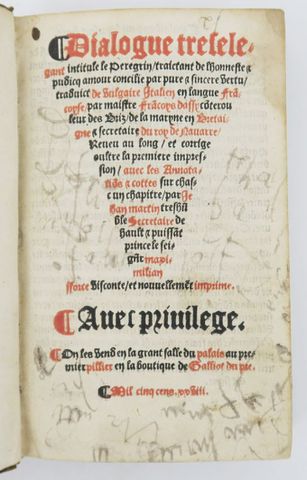 ¶Dialogue tresele-
gant intitule le Peregrin/traictant de lhonneste &
pudicq amour concilie par pure & sincere vertu/
traduict de vulgaire Italien en langue Frã-
coyse/par maistre Frãcoys dassy cõterou
leur des Briz, de la maryne en Bretai-
gne & secretaire du roy de Nauarre/
Reueu au long / et corrige
oultre la premiere impres-
sion/ auec les Annota-
tiõs & cottes sur chas-
cun chapitre/par Je
han martin treshũ
ble Secretaire de
hault & puissãt
prince le sei-
gñr maxi-
milian
sforce Visconte/et nouuellemẽt imprime.
¶Auec priuilege.
¶On les vend en la grant salle du palais au pre-
mier pillier en la boutique de Galliot du pre.
¶Mil cinq cens .xxviii.